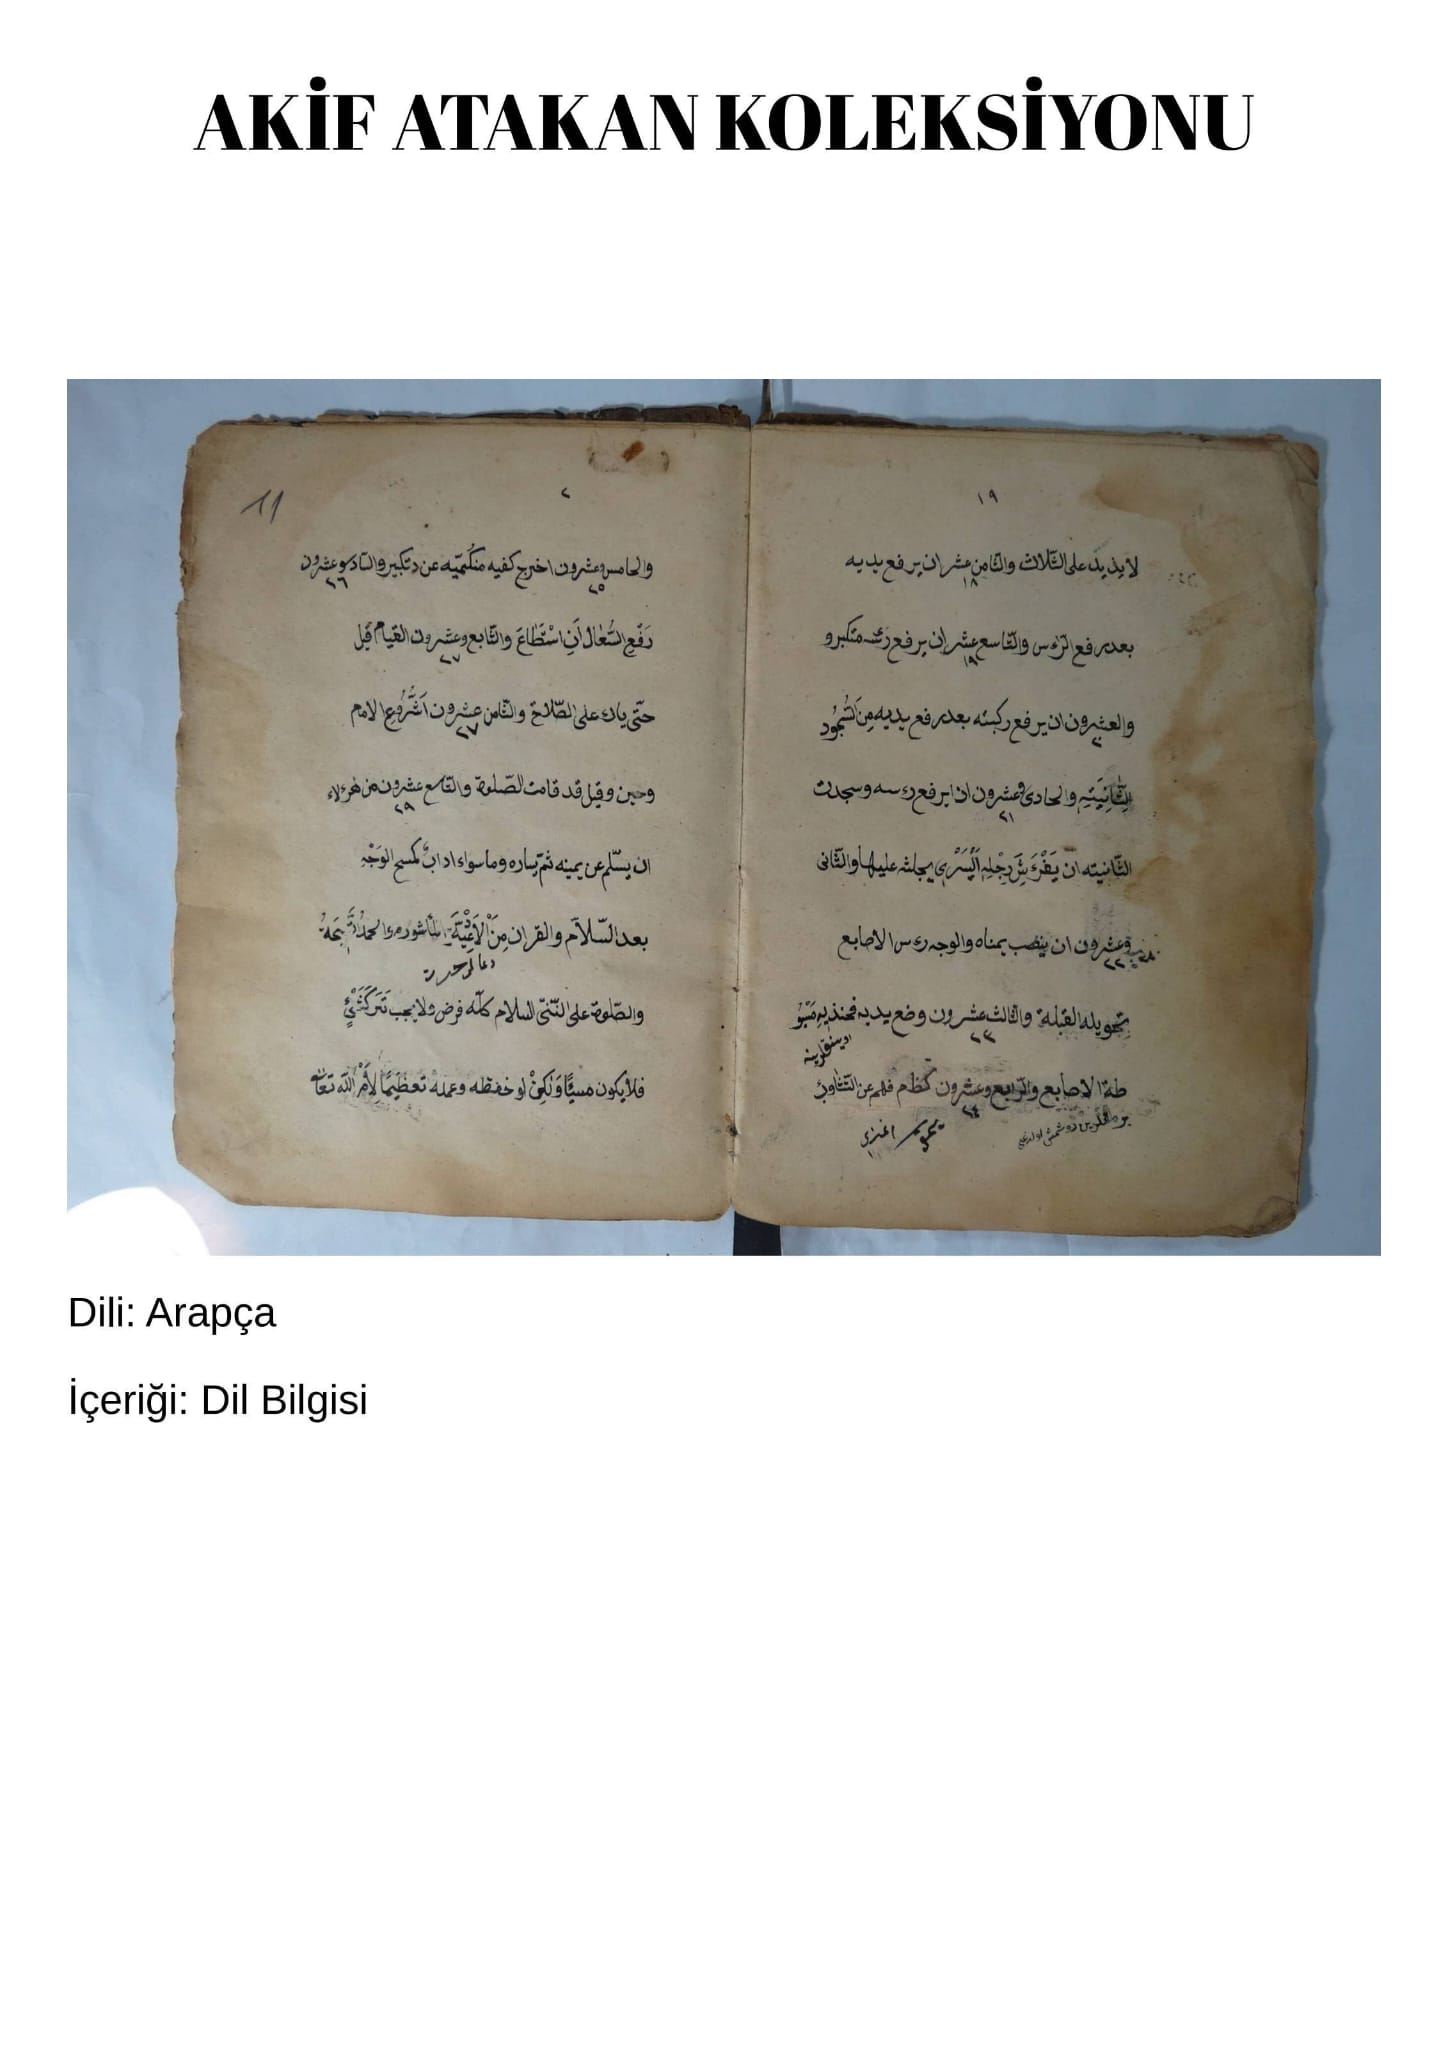 AKİF ATAKAN KOLEKSİYONU
١٩
لا يذيد على الثّلاث والثّامن عشر ان يرفع يديه
١٨
بعد رفع الرٔس والتّاسع عشر ان يرفع رٔسه متكبر و
١٩
والعشرون ان يرفع ركبته بعد رفع يديه مِنَ السُّجُود
٢٠
الثّانِيَتِهِ والحادى وعشرون اذا يرفع رٔسه وسجدت
٢١
الثّانيته ان يَفْرَشَ رِجْلِهِ اَلْيُسْرٰى يجلثه عليها والثّانى
وعشرون ان ينصب يمناه والوجه رٔس الاصابع
٢٢
تحويله القبلة والثالث عشرون وضع يديه فحنذيهِ
٢٣
طة الاصابع والرّابع وعشرون كظم فهم عن التّثاوب
٢٤
٢
11
والخامس وعشرون اخرج كفيه منكمّيه عن دتكبير والسّادس وعشرون
٢٥ ٢٦
رَفْعِ السُّعٰال اَنِ اسْتَطَاعَ والسّابع وعشرون القيام قيل
٢٧
حتّى ياك على الصّلاح والثّامن عشرون اَشُّرُوعِ الامام
٢٧
وحين وقيل قد قامت الصّلوة والتّاسع عشرون من هؤلاء
٢٩
ان يسّلم عن يمينه ثمّ يساره وما سواء اداب كمسح الوَجْهِ
بعد السّلام والقران مِنَ الْاَدْعِيَّةِ
والصّلوة على النّبّى السلام كلّه فرض ولا يجب تَرَكَشَيْءٍ
فلا يكون مسيًّا وَلٰكِنْ لو حفظه وعمله تعظيمًا لِاَمْرِ اللّه تعالى
Dili: Arapça
İçeriği: Dil Bilgisi